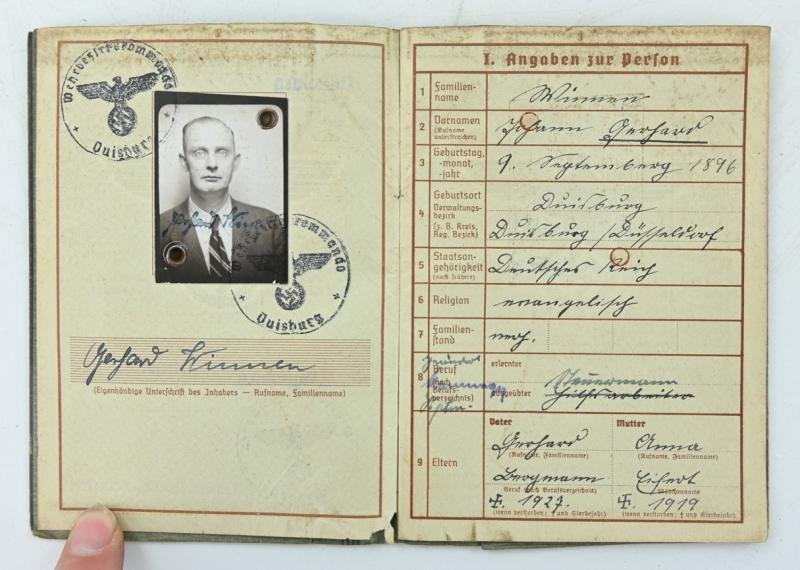 2
Wehrbezirkskommando
Duisburg
Gerhard Winnen
Wehrbezirkskommando
Duisburg
Gerhard Winnen
(Eigenhändige Unterschrift des Inhabers — Rufname, Familienname)
3
I. Angaben zur Person
1 Familien-
name
Winnen
2 Vornamen
(Rufname
unterstreichen)
Johann Gerhard
3 Geburtstag,
-monat,
-jahr
9. September 1896
4 Geburtsort
Verwaltungs-
bezirk
(z. B. Kreis,
Reg. Bezirk)
Duisburg
Duisburg / Düsseldorf
5 Staatsan-
gehörigkeit
(auch frühere)
Deutsches Reich
6 Religion
evangelisch
7 Familien-
stand
verh.
8 Beruf
(nach
Berufs-
verzeichnis)
erlernter
Steuermann
ausgeübter
Hilfsarbeiter
9 Eltern
Vater
Gerhard
(Rufname, Familienname)
Bergmann
Beruf (nach Berufsverzeichnis)
† 1927.
(wenn verstorben: † und Sterbejahr)
Mutter
Anna
(Rufname, Familienname)
Eifert
Mädchenname
† 1919
(wenn verstorben: † und Sterbejahr)